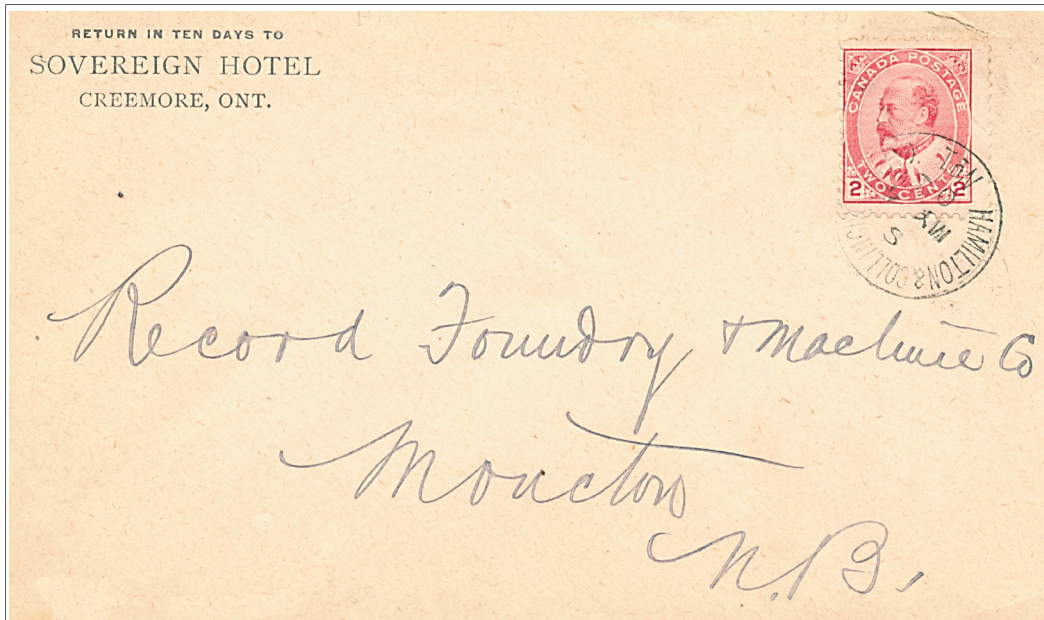 RETURN IN TEN DAYS TO
SOVEREIGN HOTEL
CREEMORE, ONT.
CANADA POSTAGE
TWO CENTS
2 2
HAMILTON & COLLING
MY
S
Record Foundry & Machine Co
Moncton
N.B.